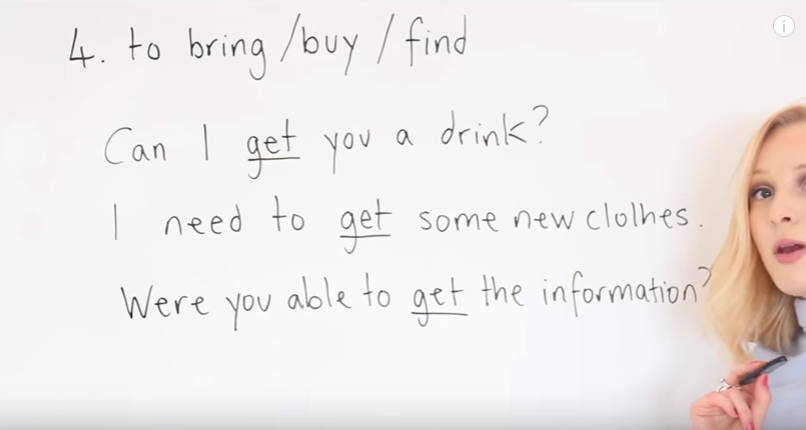 4. to bring/buy/find
Can I get you a drink?
I need to get some new clothes.
Were you able to get the information?